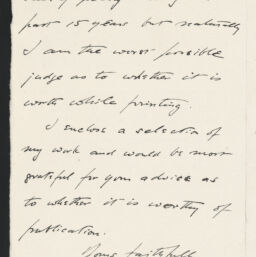 past 15 years but naturally
I am the worst possible
judge as to whether it is
worth while printing.
I enclose a selection of
my work and would be most
grateful for your advice as
to whether it is worthy of
publication.
Yours faithfully